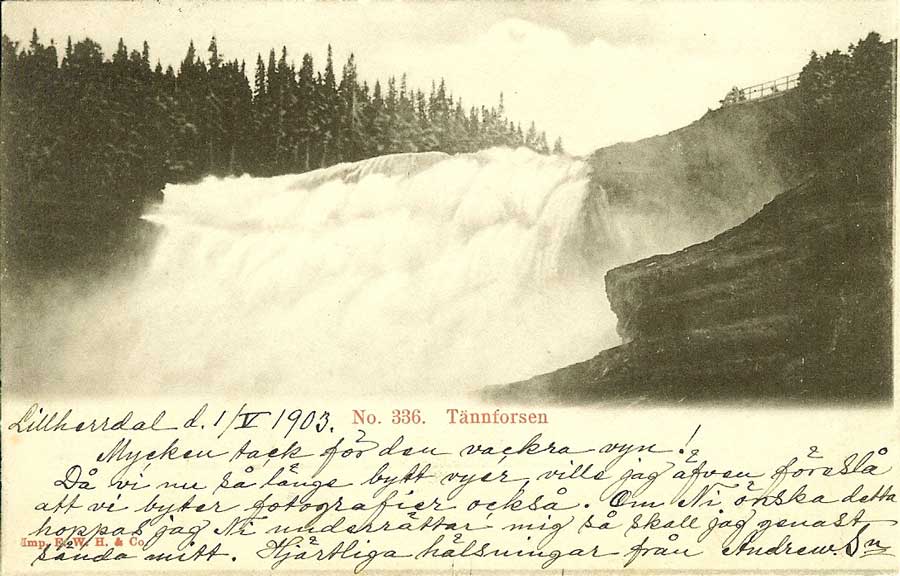 Lillherrdal d. 1/V 1903. No. 336. Tännforsen
Mycken tack för den vackra vyn!
Då vi nu så länge bytt vyer, ville jag äfven föreslå
att vi byter fotografier också. Om Ni önska detta
hoppas jag Ni underrättar mig så skall jag genast
Imp. E. W. H. & Co.
sända mitt. Hjärtliga hälsningar från Andrew. Sn